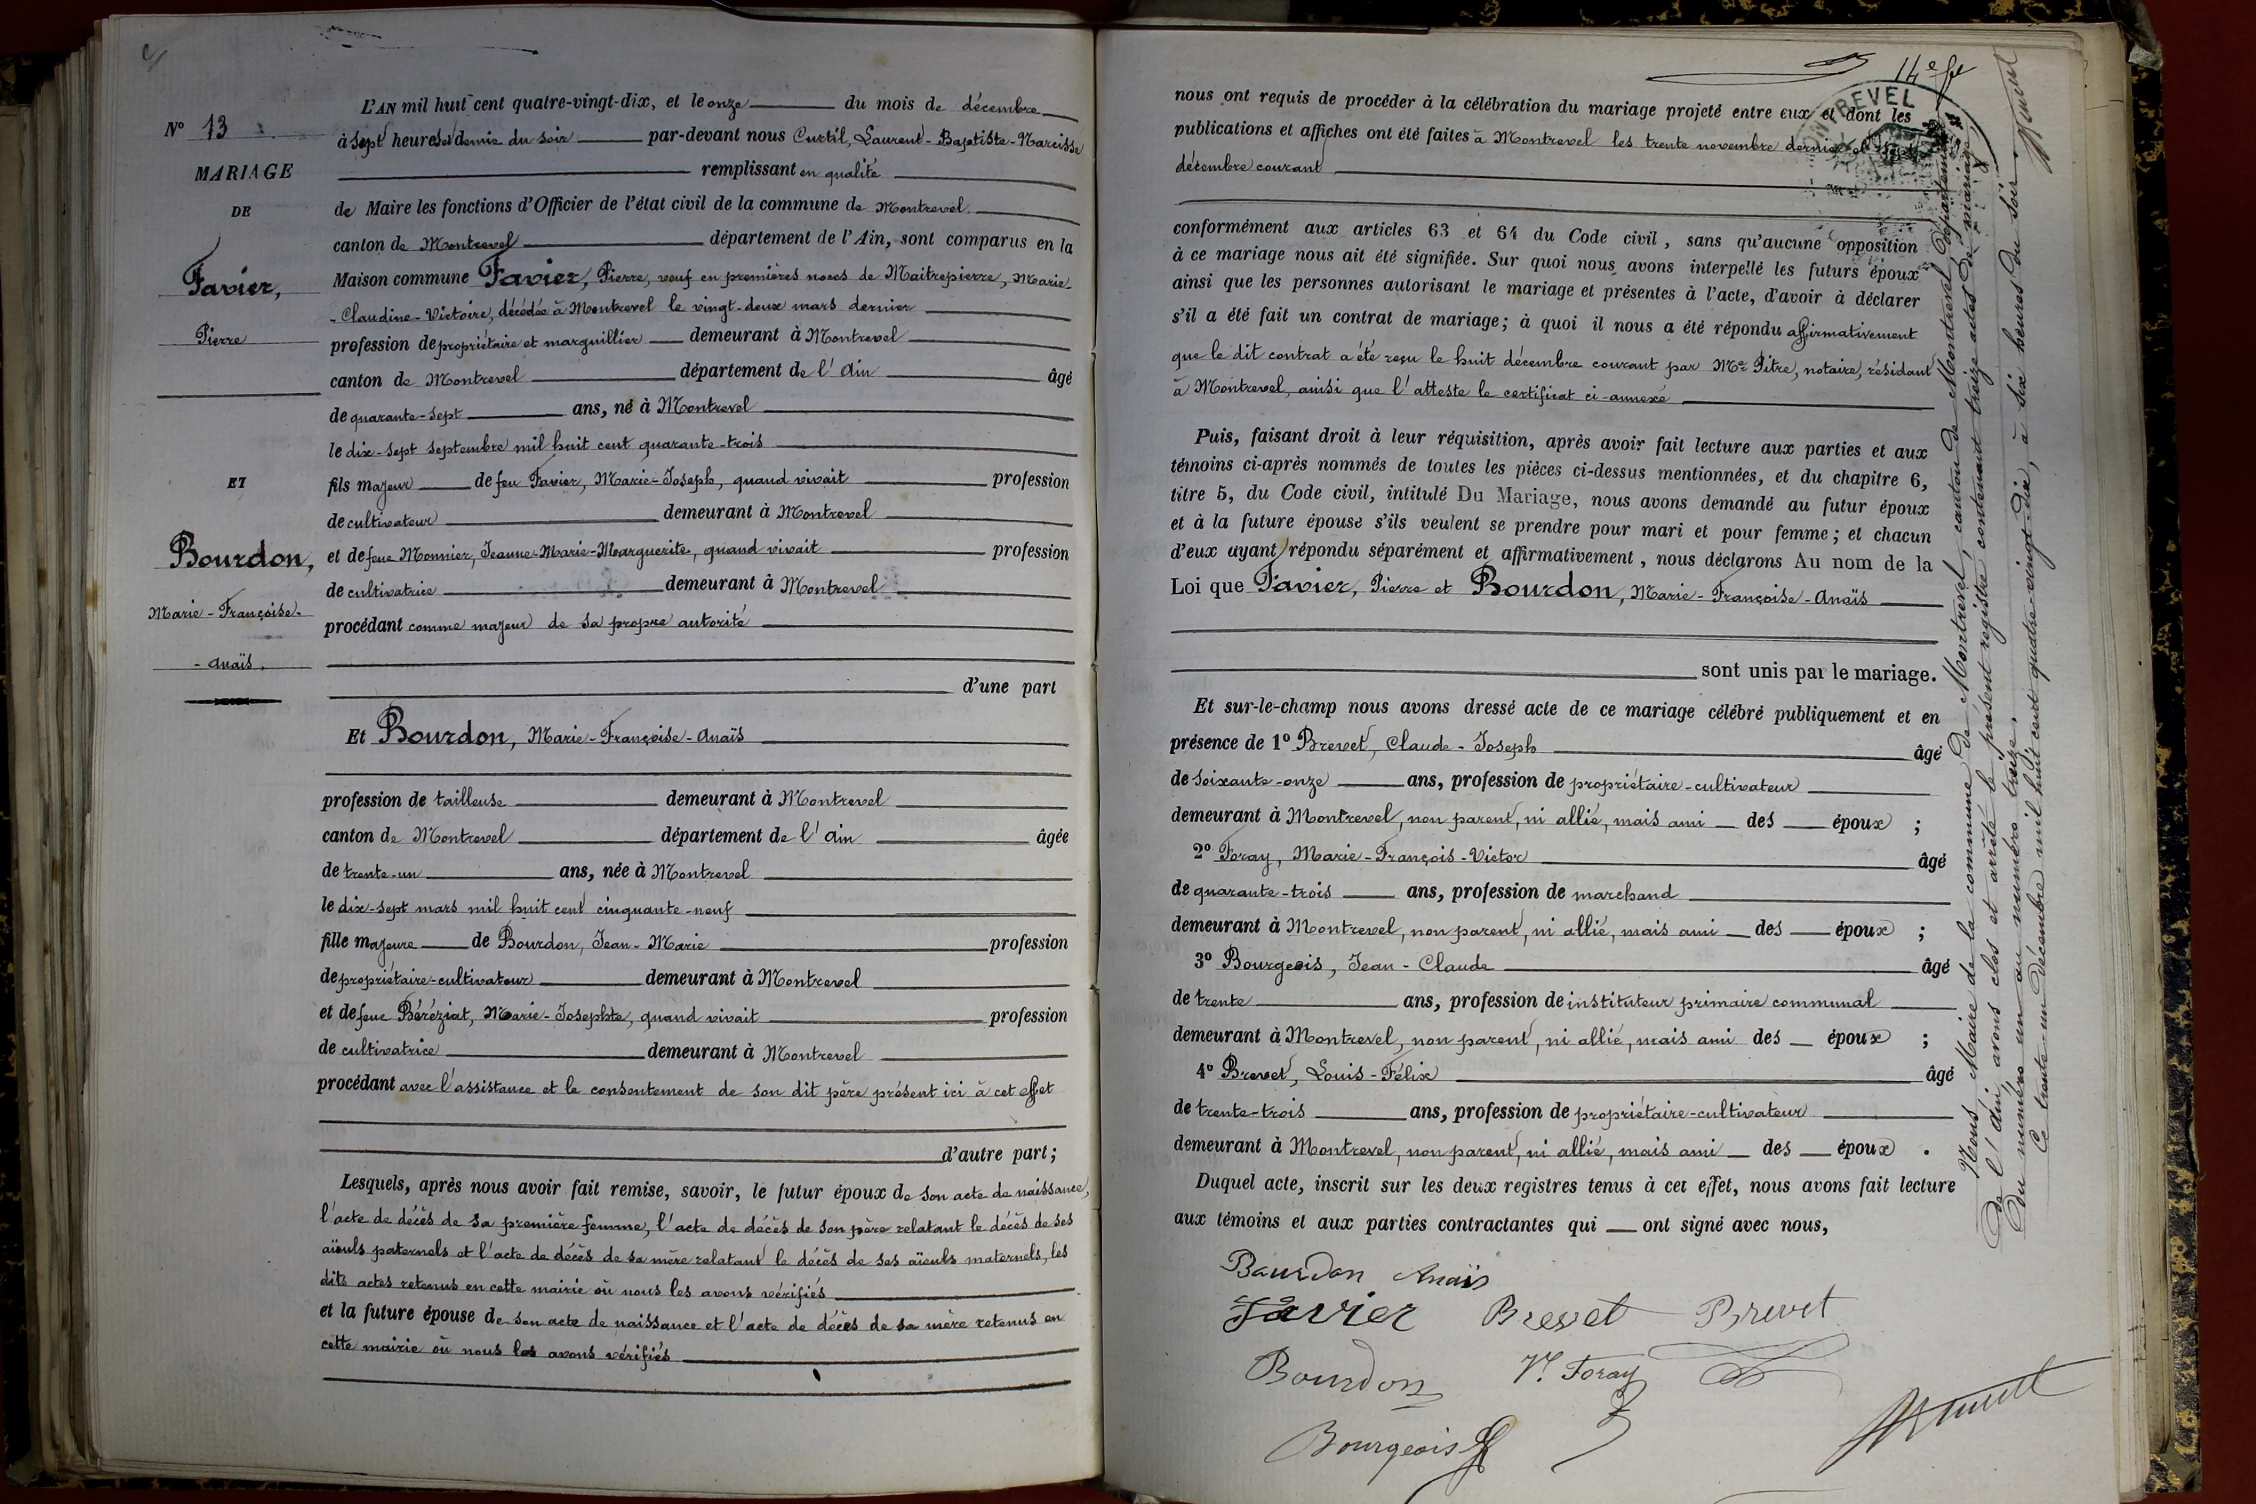 N° 13
MARIAGE
DE
Favier,
Pierre
ET
Bourdon,
Marie-Françoise-
-Anaïs.
L'AN mil huit cent quatre-vingt-dix, et le onze du mois de décembre
à sept heures et demie du soir par-devant nous Curtil, Laurent-Baptiste-Narcisse
remplissant en qualité
de Maire les fonctions d'Officier de l'état civil de la commune de Montrevel
canton de Montrevel département de l'Ain, sont comparus en la
Maison commune Favier, Pierre, veuf en premières noces de Maitrepierre, Marie-
-Claudine-Victoire, décédée à Montrevel le vingt-deux mars dernier
profession de propriétaire et marguillier demeurant à Montrevel
canton de Montrevel département de l'Ain âgé
de quarante-sept ans, né à Montrevel
le dix-sept septembre mil huit cent quarante-trois
fils majeur de feu Favier, Marie-Joseph, quand vivait profession
de cultivateur demeurant à Montrevel
et de feue Monnier, Jeanne-Marie-Marguerite, quand vivait profession
de cultivatrice demeurant à Montrevel
procédant comme majeur de sa propre autorité
d'une part
Et Bourdon, Marie-Françoise-Anaïs
profession de tailleuse demeurant à Montrevel
canton de Montrevel département de l'Ain âgée
de trente-un ans, née à Montrevel
le dix-sept mars mil huit cent cinquante-neuf
fille majeure de Bourdon, Jean-Marie profession
de propriétaire-cultivateur demeurant à Montrevel
et de feue Béréziat, Marie-Josephte, quand vivait profession
de cultivatrice demeurant à Montrevel
procédant avec l'assistance et le consentement de son dit père présent ici à cet effet
d'autre part;
Lesquels, après nous avoir fait remise, savoir, le futur époux de son acte de naissance,
l'acte de décès de sa première femme, l'acte de décès de son père relatant le décès de ses
aïeuls paternels et l'acte de décès de sa mère relatant le décès de ses aïeuls maternels, les
dits actes retenus en cette mairie où nous les avons vérifiés
et la future épouse de son acte de naissance et l'acte de décès de sa mère retenus en
cette mairie où nous les avons vérifiés
14e fe
MONTREVEL
nous ont requis de procéder à la célébration du mariage projeté entre eux et dont les
publications et affiches ont été faites à Montrevel les trente novembre dernier et sept
décembre courant
conformément aux articles 63 et 64 du Code civil, sans qu'aucune opposition
à ce mariage nous ait été signifiée. Sur quoi nous avons interpellé les futurs époux
ainsi que les personnes autorisant le mariage et présentes à l'acte, d'avoir à déclarer
s'il a été fait un contrat de mariage; à quoi il nous a été répondu affirmativement
que le dit contrat a été reçu le huit décembre courant par Me Pitre, notaire, résidant
à Montrevel, ainsi que l'atteste le certificat ci-annexé
Puis, faisant droit à leur réquisition, après avoir fait lecture aux parties et aux
témoins ci-après nommés de toutes les pièces ci-dessus mentionnées, et du chapitre 6,
titre 5, du Code civil, intitulé Du Mariage, nous avons demandé au futur époux
et à la future épouse s'ils veulent se prendre pour mari et pour femme; et chacun
d'eux ayant répondu séparément et affirmativement, nous déclarons Au nom de la
Loi que Favier, Pierre et Bourdon, Marie-Françoise-Anaïs
sont unis par le mariage.
Et sur-le-champ nous avons dressé acte de ce mariage célébré publiquement et en
présence de 1° Brevet, Claude-Joseph âgé
de soixante-onze ans, profession de propriétaire-cultivateur
demeurant à Montrevel, non parent, ni allié, mais ami des époux ;
2° Foray, Marie-François-Victor âgé
de quarante-trois ans, profession de marchand
demeurant à Montrevel, non parent, ni allié, mais ami des époux ;
3° Bourgeois, Jean-Claude âgé
de trente ans, profession de instituteur primaire communal
demeurant à Montrevel, non parent, ni allié, mais ami des époux ;
4° Brevet, Louis-Félix âgé
de trente-trois ans, profession de propriétaire-cultivateur
demeurant à Montrevel, non parent, ni allié, mais ami des époux .
Duquel acte, inscrit sur les deux registres tenus à cet effet, nous avons fait lecture
aux témoins et aux parties contractantes qui ont signé avec nous,
Bourdon Anaïs
Favier Brevet Brevet
Bourdon Vr Foray
Bourgeois
Nous Maire de la commune de Montrevel, canton de Montrevel, département
de l'Ain avons clos et arrêté le présent registre contenant treize actes de mariage
du numéro un au numéro treize.
Ce trente-un décembre mil huit cent quatre-vingt-dix, à six heures du soir.